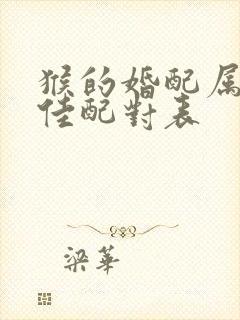 猴的婚配属
佳配對表
梁華